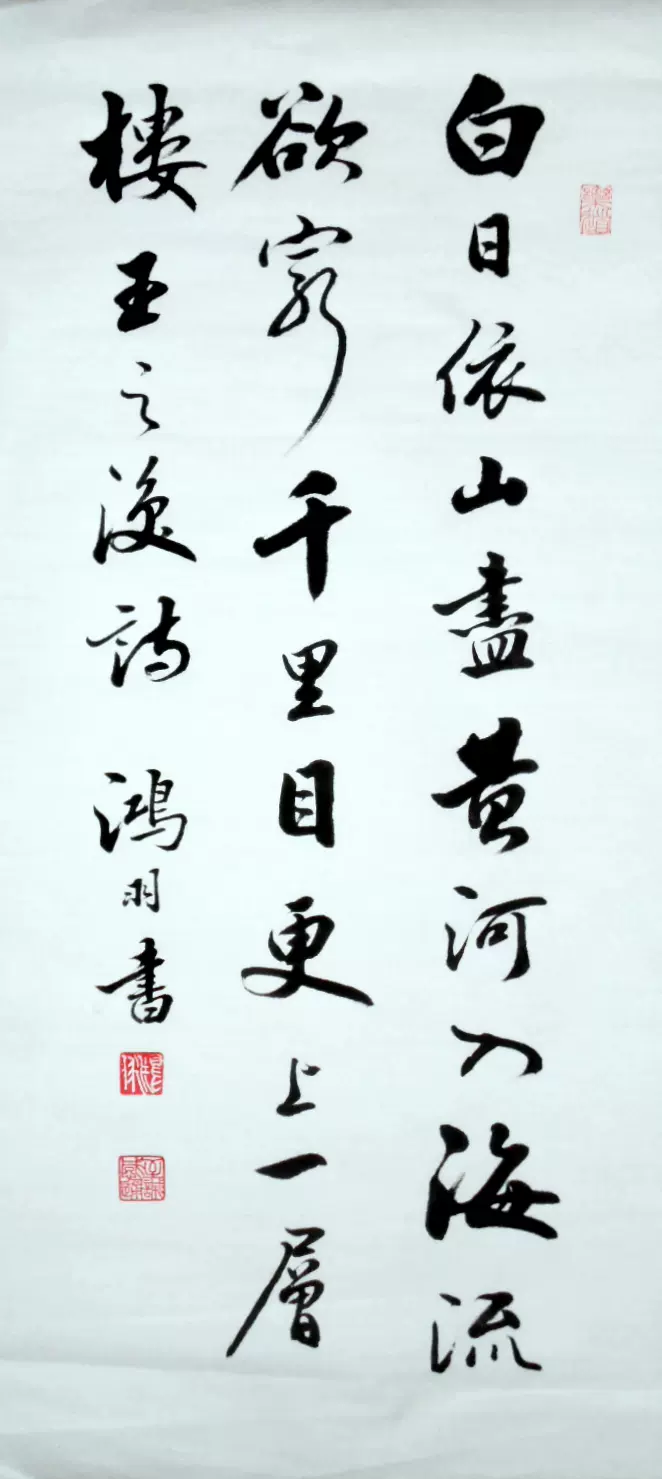 白日依山盡黄河入海流
欲窮千里目更上一層
樓王之渙詩 鴻羽書